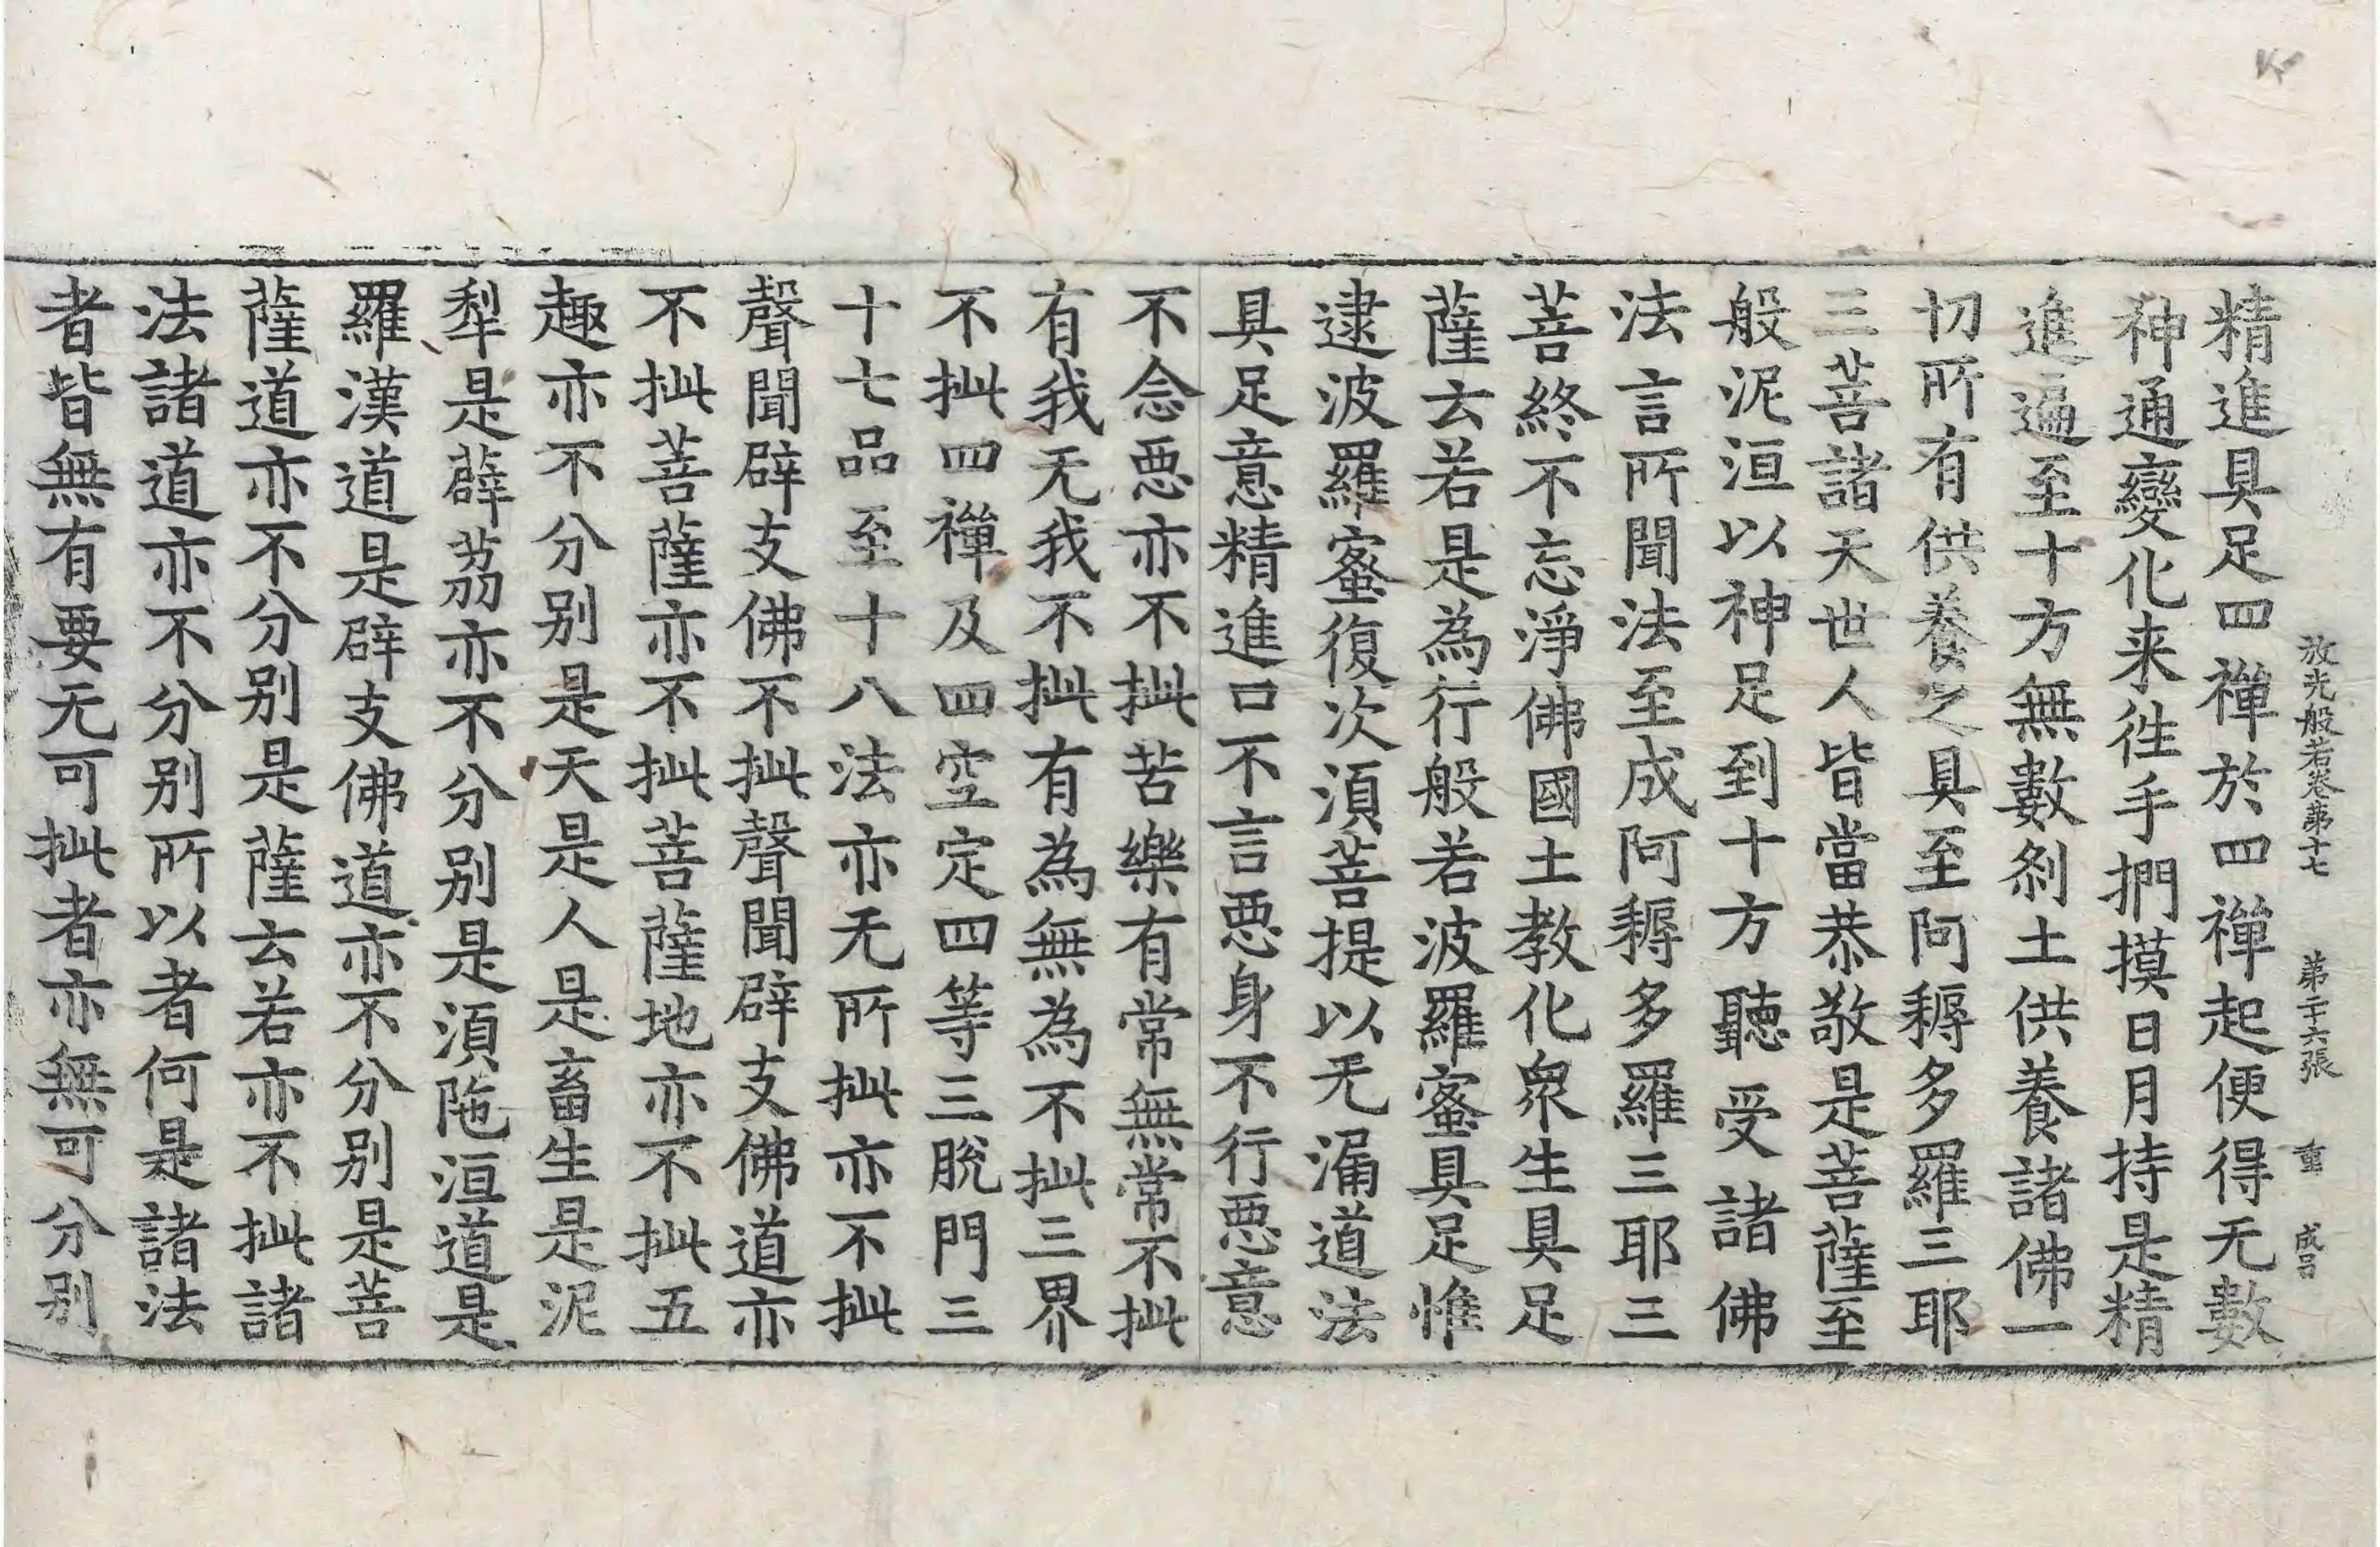 放光般若卷第十七 第二十六張 重 成呂
精進具足四禪於四禪起便得无數
神通變化来徃手捫摸日月持是精
進遍至十方無數刹土供養諸佛一
切所有供養之具至阿耨多羅三耶
三菩諸天世人皆當恭敬是菩薩至
般泥洹以神足到十方聽受諸佛
法言所聞法至成阿耨多羅三耶三
菩終不忘淨佛國土教化衆生具足
薩云若是為行般若波羅蜜具足惟
逮波羅蜜復次湏菩提以无漏道法
具足意精進口不言恶身不行恶意
不念恶亦不㧗苦樂有常無常不㧗
有我无我不㧗有為無為不㧗三界
不㧗四禪及四空定四等三脫門三
十七品至十八法亦无所㧗亦不㧗
聲聞辟支佛不㧗聲聞辟支佛道亦
不㧗菩薩亦不㧗菩薩地亦不㧗五
趣亦不分别是天是人是畜生是泥
犁是薜茘亦不分别是湏陁洹道是
羅漢道是辟支佛道亦不分别是菩
薩道亦不分别是薩云若亦不㧗諸
法諸道亦不分别所以者何是諸法
者皆無有要无可㧗者亦無可分别